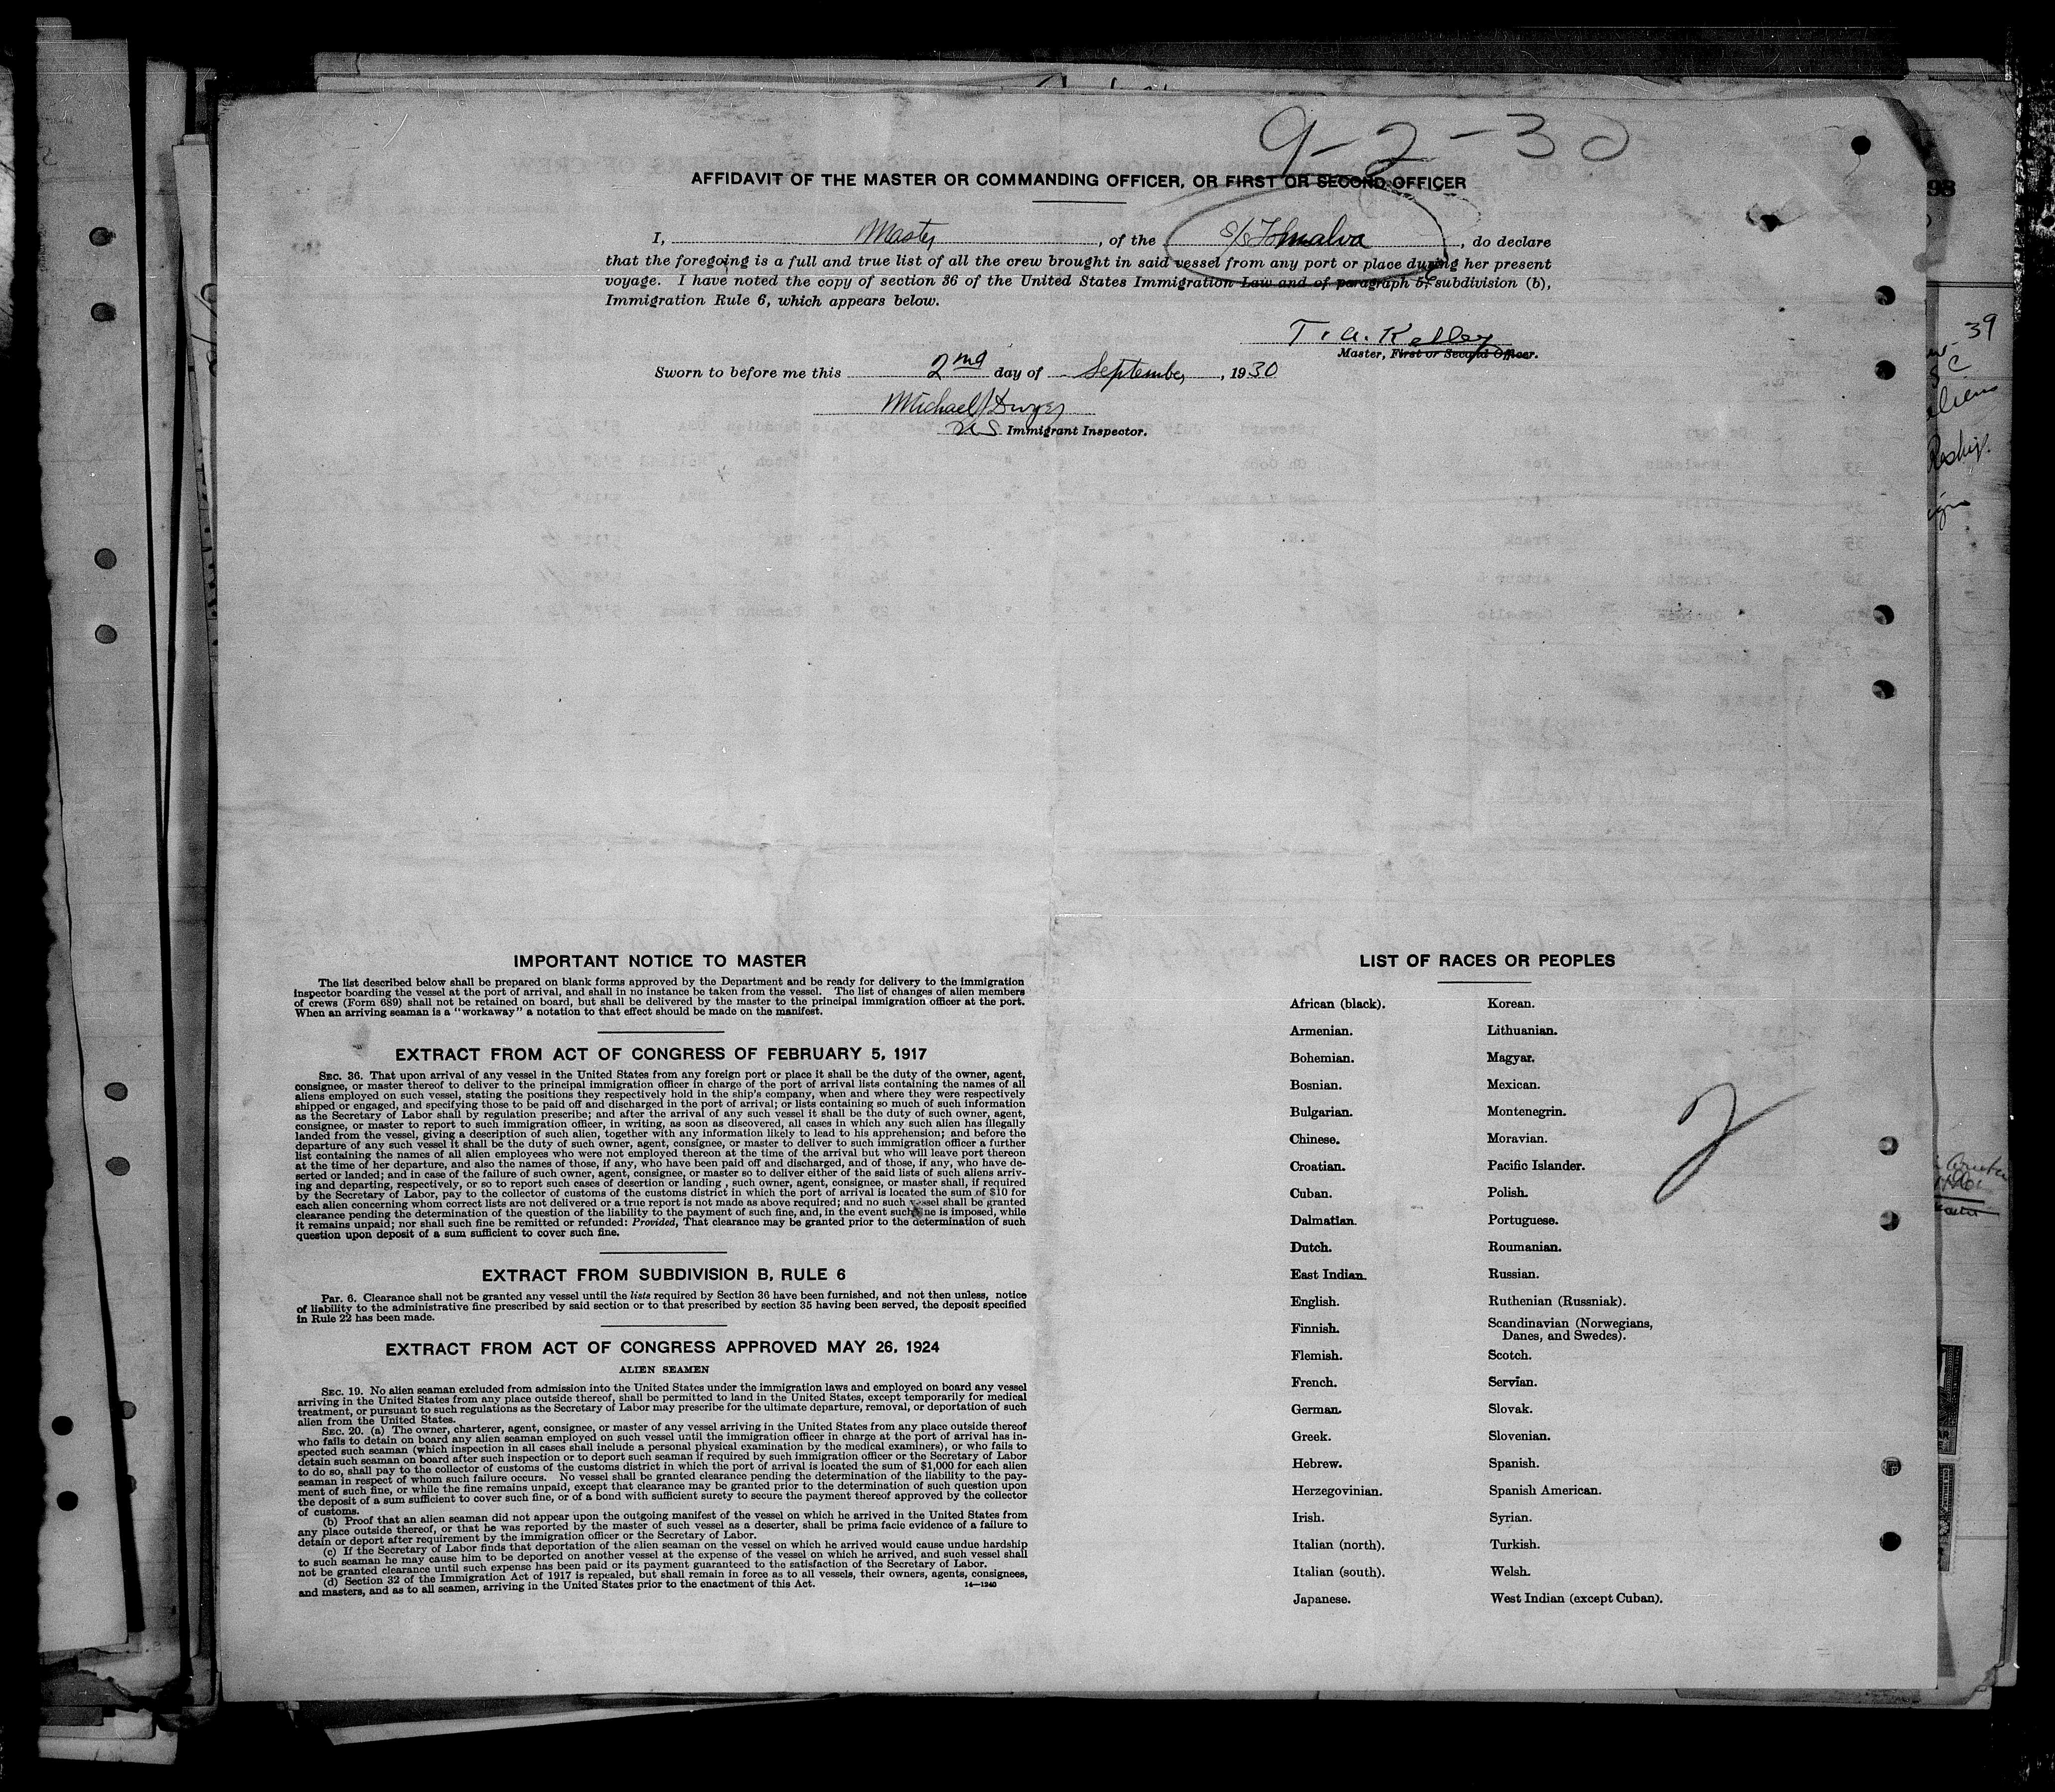 9-2-30
AFFIDAVIT OF THE MASTER OR COMMANDING OFFICER, OR FIRST OR SECOND OFFICER
I, Master, of the S/S, do declare
that the foregoing is a full and true list of all the crew brought in said vessel from any port or place during her present
voyage. I have noted the copy of section 36 of the United States Immigration Law and of paragraph 5, subdivision (b),
Immigration Rule 6, which appears below.
T. A. Kelley
Master, First or Second Officer.
Sworn to before me this 2nd day of September, 1930
Michael Dwyer
US Immigrant Inspector.
IMPORTANT NOTICE TO MASTER
The list described below shall be prepared on blank forms approved by the Department and be ready for delivery to the immigration
inspector boarding the vessel at the port of arrival, and shall in no instance be taken from the vessel. The list of changes of alien members
of crews (Form 689) shall not be retained on board, but shall be delivered by the master to the principal immigration officer at the port.
When an arriving seaman is a "workaway" a notation to that effect should be made on the manifest.
EXTRACT FROM ACT OF CONGRESS OF FEBRUARY 5, 1917
SEC. 36. That upon arrival of any vessel in the United States from any foreign port or place it shall be the duty of the owner, agent,
consignee, or master thereof to deliver to the principal immigration officer in charge of the port of arrival lists containing the names of all
aliens employed on such vessel, stating the positions they respectively hold in the ship's company, when and where they were respectively
shipped or engaged, and specifying those to be paid off and discharged in the port of arrival; or lists containing so much of such information
as the Secretary of Labor shall by regulation prescribe; and after the arrival of any such vessel it shall be the duty of such owner, agent,
consignee, or master to report to such immigration officer, in writing, as soon as discovered, all cases in which any such alien has illegally
landed from the vessel, giving a description of such alien, together with any information likely to lead to his apprehension; and before the
departure of any such vessel it shall be the duty of such owner, agent, consignee, or master to deliver to such immigration officer a further
list containing the names of all alien employees who were not employed thereon at the time of the arrival but who will leave port thereon
at the time of her departure, and also the names of those, if any, who have been paid off and discharged, and of those, if any, who have de-
serted or landed; and in case of the failure of such owner, agent, consignee, or master so to deliver either of the said lists of such aliens arriv-
ing and departing, respectively, or so to report such cases of desertion or landing, such owner, agent, consignee, or master shall, if required
by the Secretary of Labor, pay to the collector of customs of the customs district in which the port of arrival is located the sum of $10 for
each alien concerning whom correct lists are not delivered or a true report is not made as above required; and no such vessel shall be granted
clearance pending the determination of the question of the liability to the payment of such fine, and, in the event such fine is imposed, while
it remains unpaid; nor shall such fine be remitted or refunded: Provided, That clearance may be granted prior to the determination of such
question upon deposit of a sum sufficient to cover such fine.
EXTRACT FROM SUBDIVISION B, RULE 6
PAR. 6. Clearance shall not be granted any vessel until the lists required by Section 36 have been furnished, and not then unless, notice
of liability to the administrative fine prescribed by said section or to that prescribed by section 35 having been served, the deposit specified
in Rule 22 has been made.
EXTRACT FROM ACT OF CONGRESS APPROVED MAY 26, 1924
ALIEN SEAMEN
SEC. 19. No alien seaman excluded from admission into the United States under the immigration laws and employed on board any vessel
arriving in the United States from any place outside thereof, shall be permitted to land in the United States, except temporarily for medical
treatment, or pursuant to such regulations as the Secretary of Labor may prescribe for the ultimate departure, removal, or deportation of such
alien from the United States.
SEC. 20. (a) The owner, charterer, agent, consignee, or master of any vessel arriving in the United States from any place outside thereof
who fails to detain on board any alien seaman employed on such vessel until the immigration officer in charge at the port of arrival has in-
spected such seaman (which inspection in all cases shall include a personal physical examination by the medical examiners), or who fails to
detain such seaman on board after such inspection or to deport such seaman if required by such immigration officer or the Secretary of Labor
to do so, shall pay to the collector of customs of the customs district in which the port of arrival is located the sum of $1,000 for each alien
seaman in respect of whom such failure occurs. No vessel shall be granted clearance pending the determination of the liability to the pay-
ment of such fine, or while the fine remains unpaid, except that clearance may be granted prior to the determination of such question upon
the deposit of a sum sufficient to cover such fine, or of a bond with sufficient surety to secure the payment thereof approved by the collector
of customs.
(b) Proof that an alien seaman did not appear upon the outgoing manifest of the vessel on which he arrived in the United States from
any place outside thereof, or that he was reported by the master of such vessel as a deserter, shall be prima facie evidence of a failure to
detain or deport after requirement by the immigration officer or the Secretary of Labor.
(c) If the Secretary of Labor finds that deportation of the alien seaman on the vessel on which he arrived would cause undue hardship
to such seaman he may cause him to be deported on another vessel at the expense of the vessel on which he arrived, and such vessel shall
not be granted clearance until such expense has been paid or its payment guaranteed to the satisfaction of the Secretary of Labor.
(d) Section 32 of the Immigration Act of 1917 is repealed, but shall remain in force as to all vessels, their owners, agents, consignees,
and masters, and as to all seamen, arriving in the United States prior to the enactment of this Act.
14—1240
LIST OF RACES OR PEOPLES
African (black).
Armenian.
Bohemian.
Bosnian.
Bulgarian.
Chinese.
Croatian.
Cuban.
Dalmatian.
Dutch.
East Indian.
English.
Finnish.
Flemish.
French.
German.
Greek.
Hebrew.
Herzegovinian.
Irish.
Italian (north).
Italian (south).
Japanese.
Korean.
Lithuanian.
Magyar.
Mexican.
Montenegrin.
Moravian.
Pacific Islander.
Polish.
Portuguese.
Roumanian.
Russian.
Ruthenian (Russniak).
Scandinavian (Norwegians,
Danes, and Swedes).
Scotch.
Servian.
Slovak.
Slovenian.
Spanish.
Spanish American.
Syrian.
Turkish.
Welsh.
West Indian (except Cuban).
2
98
39